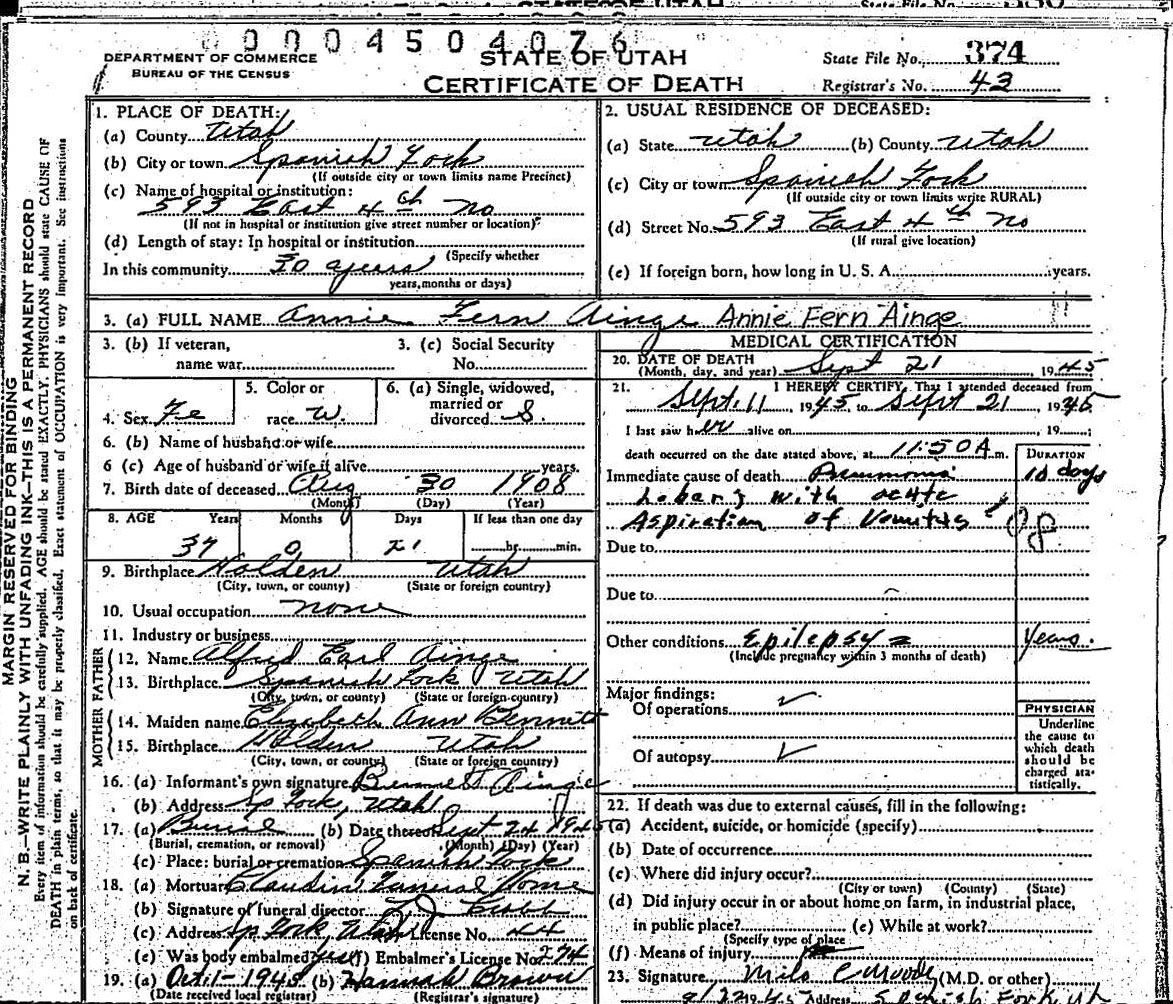 0 0 0 4 5 0 4 0 7 6
DEPARTMENT OF COMMERCE
BUREAU OF THE CENSUS
STATE OF UTAH
CERTIFICATE OF DEATH
State File No. 374
Registrar's No. 43
MARGIN RESERVED FOR BINDING
N. B.—WRITE PLAINLY WITH UNFADING INK—THIS IS A PERMANENT RECORD
Every item of information should be carefully supplied. AGE should be stated EXACTLY. PHYSICIANS should state CAUSE OF
DEATH in plain terms, so that it may be properly classified. Exact statement of OCCUPATION is very important. See instructions
on back of certificate.
1. PLACE OF DEATH:
(a) County Utah
(b) City or town Spanish Fork
(If outside city or town limits name Precinct)
(c) Name of hospital or institution:
593 East 4th no
(If not in hospital or institution give street number or location)
(d) Length of stay: In hospital or institution
(Specify whether
In this community 30 years
years, months or days)
2. USUAL RESIDENCE OF DECEASED:
(a) State Utah (b) County Utah
(c) City or town Spanish Fork
(If outside city or town limits write RURAL)
(d) Street No. 593 East 4th no
(If rural give location)
(e) If foreign born, how long in U. S. A. years.
3. (a) FULL NAME Annie Fern Ainge Annie Fern Ainge
3. (b) If veteran,
name war
3. (c) Social Security
No.
4. Sex Fe
5. Color or
race W.
6. (a) Single, widowed,
married or
divorced S.
6. (b) Name of husband or wife
6 (c) Age of husband or wife if alive years.
7. Birth date of deceased Aug 30 1908
(Month) (Day) (Year)
8. AGE Years Months Days If less than one day
37 0 21 hr. min.
9. Birthplace Holden Utah
(City, town, or county) (State or foreign country)
10. Usual occupation none
11. Industry or business
FATHER
12. Name Alfred Earl Ainge
13. Birthplace Spanish Fork Utah
(City, town, or county) (State or foreign country)
MOTHER
14. Maiden name Elizabeth Ann Bennett
15. Birthplace Holden Utah
(City, town, or county) (State or foreign country)
16. (a) Informant's own signature Bennett Ainge
(b) Address Sp Fork, Utah
17. (a) Burial (b) Date thereof Sept 24 1945
(Burial, cremation, or removal) (Month) (Day) (Year)
(c) Place: burial or cremation Spanish Fork
18. (a) Mortuary Claudin Funeral Home
(b) Signature of funeral director
(c) Address Sp Fork, Utah License No. 44
(e) Was body embalmed yes (f) Embalmer's License No. 274
19. (a) Oct. 1 - 1945 (b) Hannah Brown
(Date received local registrar) (Registrar's signature)
MEDICAL CERTIFICATION
20. DATE OF DEATH
(Month, day, and year) Sept 21, 1945
21. I HEREBY CERTIFY, That I attended deceased from
Sept. 11, 1945, to Sept 21, 1945
I last saw her alive on , 19 ;
death occurred on the date stated above, at 11:50 A. m.
DURATION
Immediate cause of death Pneumonia 10 days
Lobar; with acute
Aspiration of Vomitus 108
Due to
Due to
Other conditions Epilepsy years.
(Include pregnancy within 3 months of death)
Major findings:
Of operations
Of autopsy
PHYSICIAN
Underline
the cause to
which death
should be
charged sta-
tistically.
22. If death was due to external causes, fill in the following:
(a) Accident, suicide, or homicide (specify)
(b) Date of occurrence
(c) Where did injury occur?
(City or town) (County) (State)
(d) Did injury occur in or about home, on farm, in industrial place,
in public place? (e) While at work?
(Specify type of place
(f) Means of injury
23. Signature Milo C Moody (M.D. or other)
Address Spanish Fork Ut